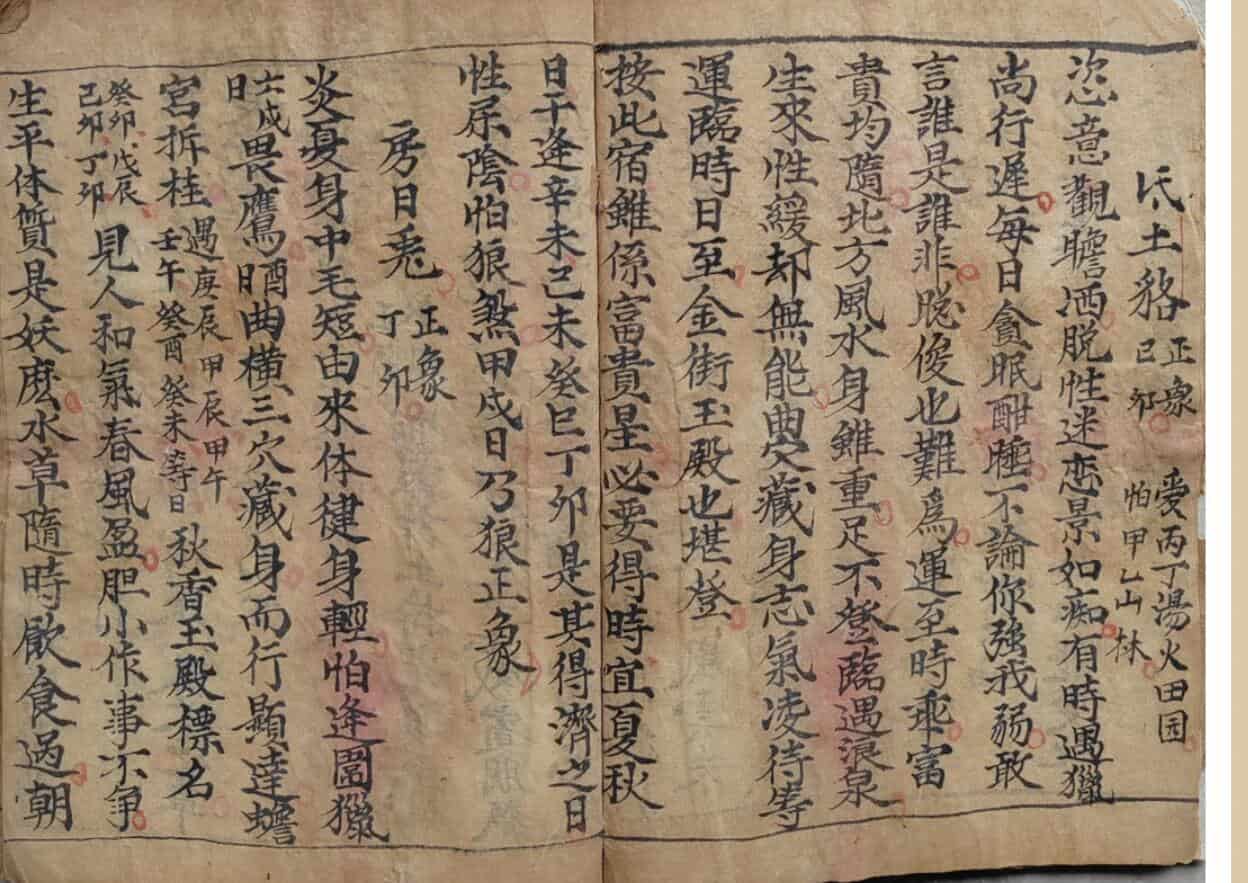 氐土貉 正象 己卯 愛丙丁湯火田园 怕甲乙山林
恣意觀瞻洒脱性迷恋景如痴有時遇獵
尚行遲每日貪眠酣睡不論你強我弱敢
言誰是誰非聡俊也難爲運至時乖富
貴均隨北方風水身雖重足不登臨遇浪泉
生來性緩却無能曲穴藏身志氣凌待等
運臨時日至金街玉殿也堪登
按此宿雖係富貴星必要得時宜夏秋
日干逢辛未己未癸巳丁卯是其得濟之日
性屎陰怕狼煞甲戌日乃狼正象
房日兎 正象 丁卯
炎夏身中毛短由來体健身輕怕逢圍獵
壬戌日畏鷹酉日曲橫三穴藏身而行顯達蟾
宮拆桂 遇庚辰甲辰甲午壬午癸酉癸未等日 秋香玉殿標名
癸卯戊辰己卯丁卯 見人和氣春風盈胆小作事不争
生平体質是妖麽水草隨時飲食過朝